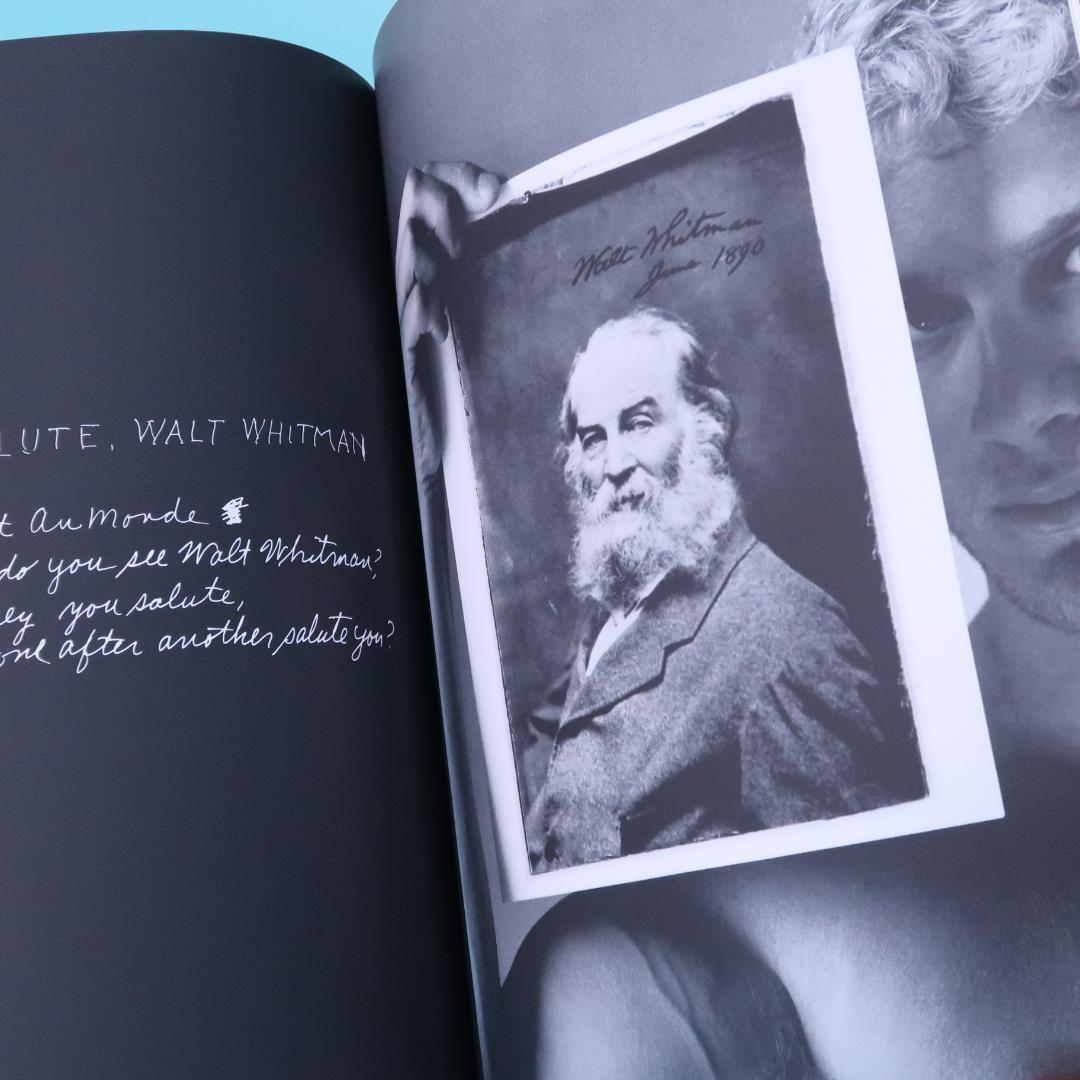 LUTE, WALT WHITMAN
t Au Monde
do you see Walt Whitman?
ey you salute,
one after another salute you?
Walt Whitman
June 1890